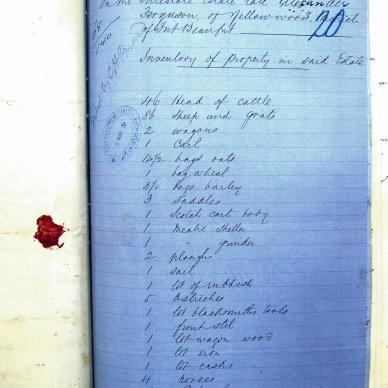 In the Insolvent Estate late Alexander
Ferguson, of Yellowwood,
of Fort Beaufort
20
Inventory of property in said Estate
46 Head of cattle
86 Sheep and goats
2 wagons
1 Cart
14½ bags oats
1 bag wheat
3½ bags barley
3 Saddles
1 Scotch cart body
1 Mealie Sheller
1 " grinder
2 ploughs
1 sail
1 lot of rubbish
5 Ostriches
1 lot blacksmiths tools
1 front
1 lot wagon wood
1 lot iron
1 lot casks
4 horses